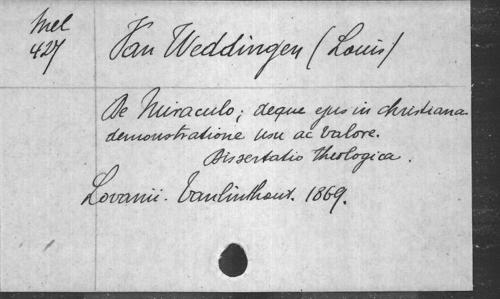 Mel
427
Van Weddingen (Louis)
De Miraculo; deque ejus in christiana
demonstratione usu ac valore.
Dissertatio theologica.
Lovanii. Vanlinthout. 1869.